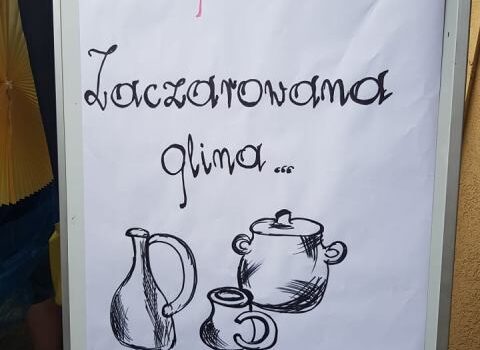 Zaczarowana
glina...